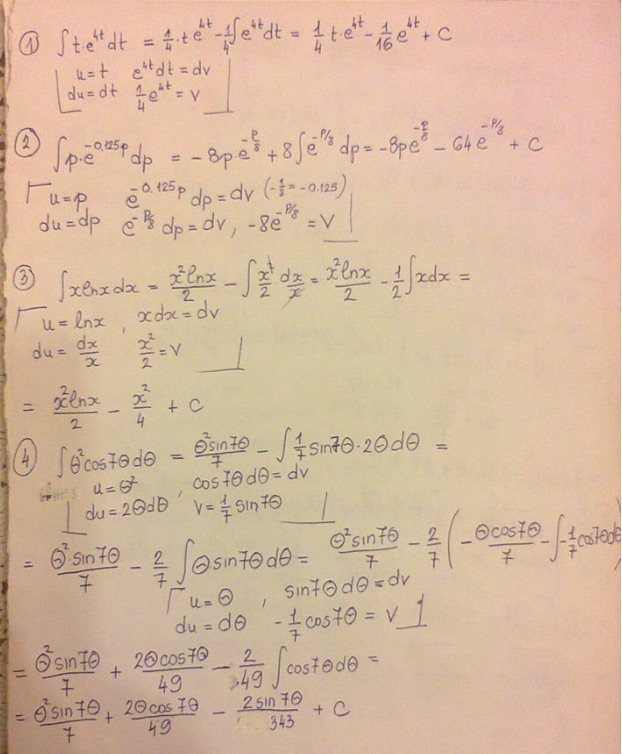 ① ∫t·e^{4t}dt = 1/4·te^{4t} - 1/4∫e^{4t}dt = 1/4 t·e^{4t} - 1/16 e^{4t} + C
u=t e^{4t}dt=dv
du=dt 1/4 e^{4t}=v
② ∫p·e^{-0,125p}dp = -8p·e^{-p/8} + 8∫e^{-p/8}dp = -8pe^{-p/8} - 64e^{-p/8} + C
u=p e^{-0.125p}dp=dv (-1/8=-0.125)
du=dp e^{-p/8}dp=dv, -8e^{-p/8}=v
③ ∫xlnxdx = x²lnx/2 - ∫x²/2 dx/x = x²lnx/2 - 1/2∫xdx =
u=lnx, xdx=dv
du=dx/x x²/2=v
= x²lnx/2 - x²/4 + C
④ ∫θ²cos7θdθ = θ²sin7θ/7 - ∫1/7 sin7θ·2θdθ =
u=θ², cos7θdθ=dv
du=2θdθ v=1/7 sin7θ
= θ²sin7θ/7 - 2/7∫θsin7θdθ = θ²sin7θ/7 - 2/7(-θcos7θ/7 - ∫-1/7cos7θdθ)
u=θ, sin7θdθ=dv
du=dθ -1/7cos7θ=v
= θ²sin7θ/7 + 2θcos7θ/49 - 2/49∫cos7θdθ =
= θ²sin7θ/7 + 2θcos7θ/49 - 2sin7θ/343 + C